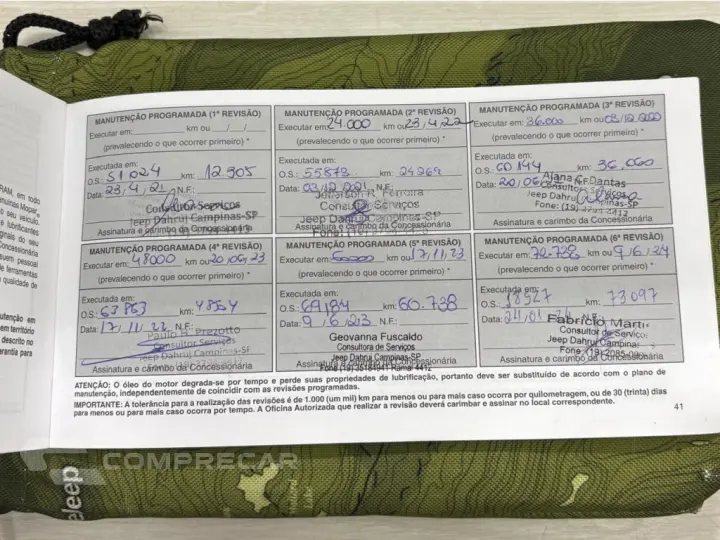 RAM, em todo
MANUTENÇÃO PROGRAMADA (1ª REVISÃO)
Executar em: km ou / /
(prevalecendo o que ocorrer primeiro) *
Executada em:
O.S.: 51024 km: 12.905
Data: 23,4,21 N.F.:
Consultor Serviços
Jeep Dahruj Campinas-SP
Assinatura e carimbo da Concessionária
MANUTENÇÃO PROGRAMADA (2ª REVISÃO)
Executar em: 24.000 km ou 23,4,22
(prevalecendo o que ocorrer primeiro) *
Executada em:
O.S.: 55873 km: 24269
Data: 03/12/021 N.F.:
Jefferson R. Ferreira
Consultor Serviços
Jeep Dahruj Campinas-SP
Assinatura e carimbo da Concessionária
MANUTENÇÃO PROGRAMADA (3ª REVISÃO)
Executar em: 36.000 km ou 03/12/
(prevalecendo o que ocorrer primeiro) *
Executada em:
O.S.: 60144 km: 36.060
Data: 20/06/ N.F.:
Alana C. Dantas
Consultora Serviços
Jeep Dahruj Campinas-SP
Fone: (19)
Assinatura e carimbo da Concessionária
MANUTENÇÃO PROGRAMADA (4ª REVISÃO)
Executar em: 48000 km ou 20/06/23
(prevalecendo o que ocorrer primeiro) *
Executada em:
O.S.: 63863 km: 48564
Data: 17,11,22 N.F.:
Paulo R. Prezotto
Consultor Serviços
Jeep Dahruj Campinas-SP
Assinatura e carimbo da Concessionária
MANUTENÇÃO PROGRAMADA (5ª REVISÃO)
Executar em: 60000 km ou 17/11/23
(prevalecendo o que ocorrer primeiro) *
Executada em:
O.S.: 69184 km: 60.738
Data: 9/6/23 N.F.:
Geovanna Fuscaldo
Consultora de Serviços
Jeep Dahruj Campinas-SP
Assinatura e carimbo da Concessionária
Fone (19) 35184941 Ramal 4412
MANUTENÇÃO PROGRAMADA (6ª REVISÃO)
Executar em: 72.738 km ou 9/6/24
(prevalecendo o que ocorrer primeiro) *
Executada em:
O.S.: 18527 km: 73097
Data: 24/01/ N.F.:
Fabrício
Consultor de Serviços
Jeep Dahruj Campinas
Fone (19) 2085-
Assinatura e carimbo da Concessionária
ATENÇÃO: O óleo do motor degrada-se por tempo e perde suas propriedades de lubrificação, portanto deve ser substituído de acordo com o plano de
manutenção, independentemente de coincidir com as revisões programadas.
IMPORTANTE: A tolerância para a realização das revisões é de 1.000 (um mil) km para menos ou para mais caso ocorra por quilometragem, ou de 30 (trinta) dias
para menos ou para mais caso ocorra por tempo. A Oficina Autorizada que realizar a revisão deverá carimbar e assinar no local correspondente.
41
COMPRECAR
Jeep